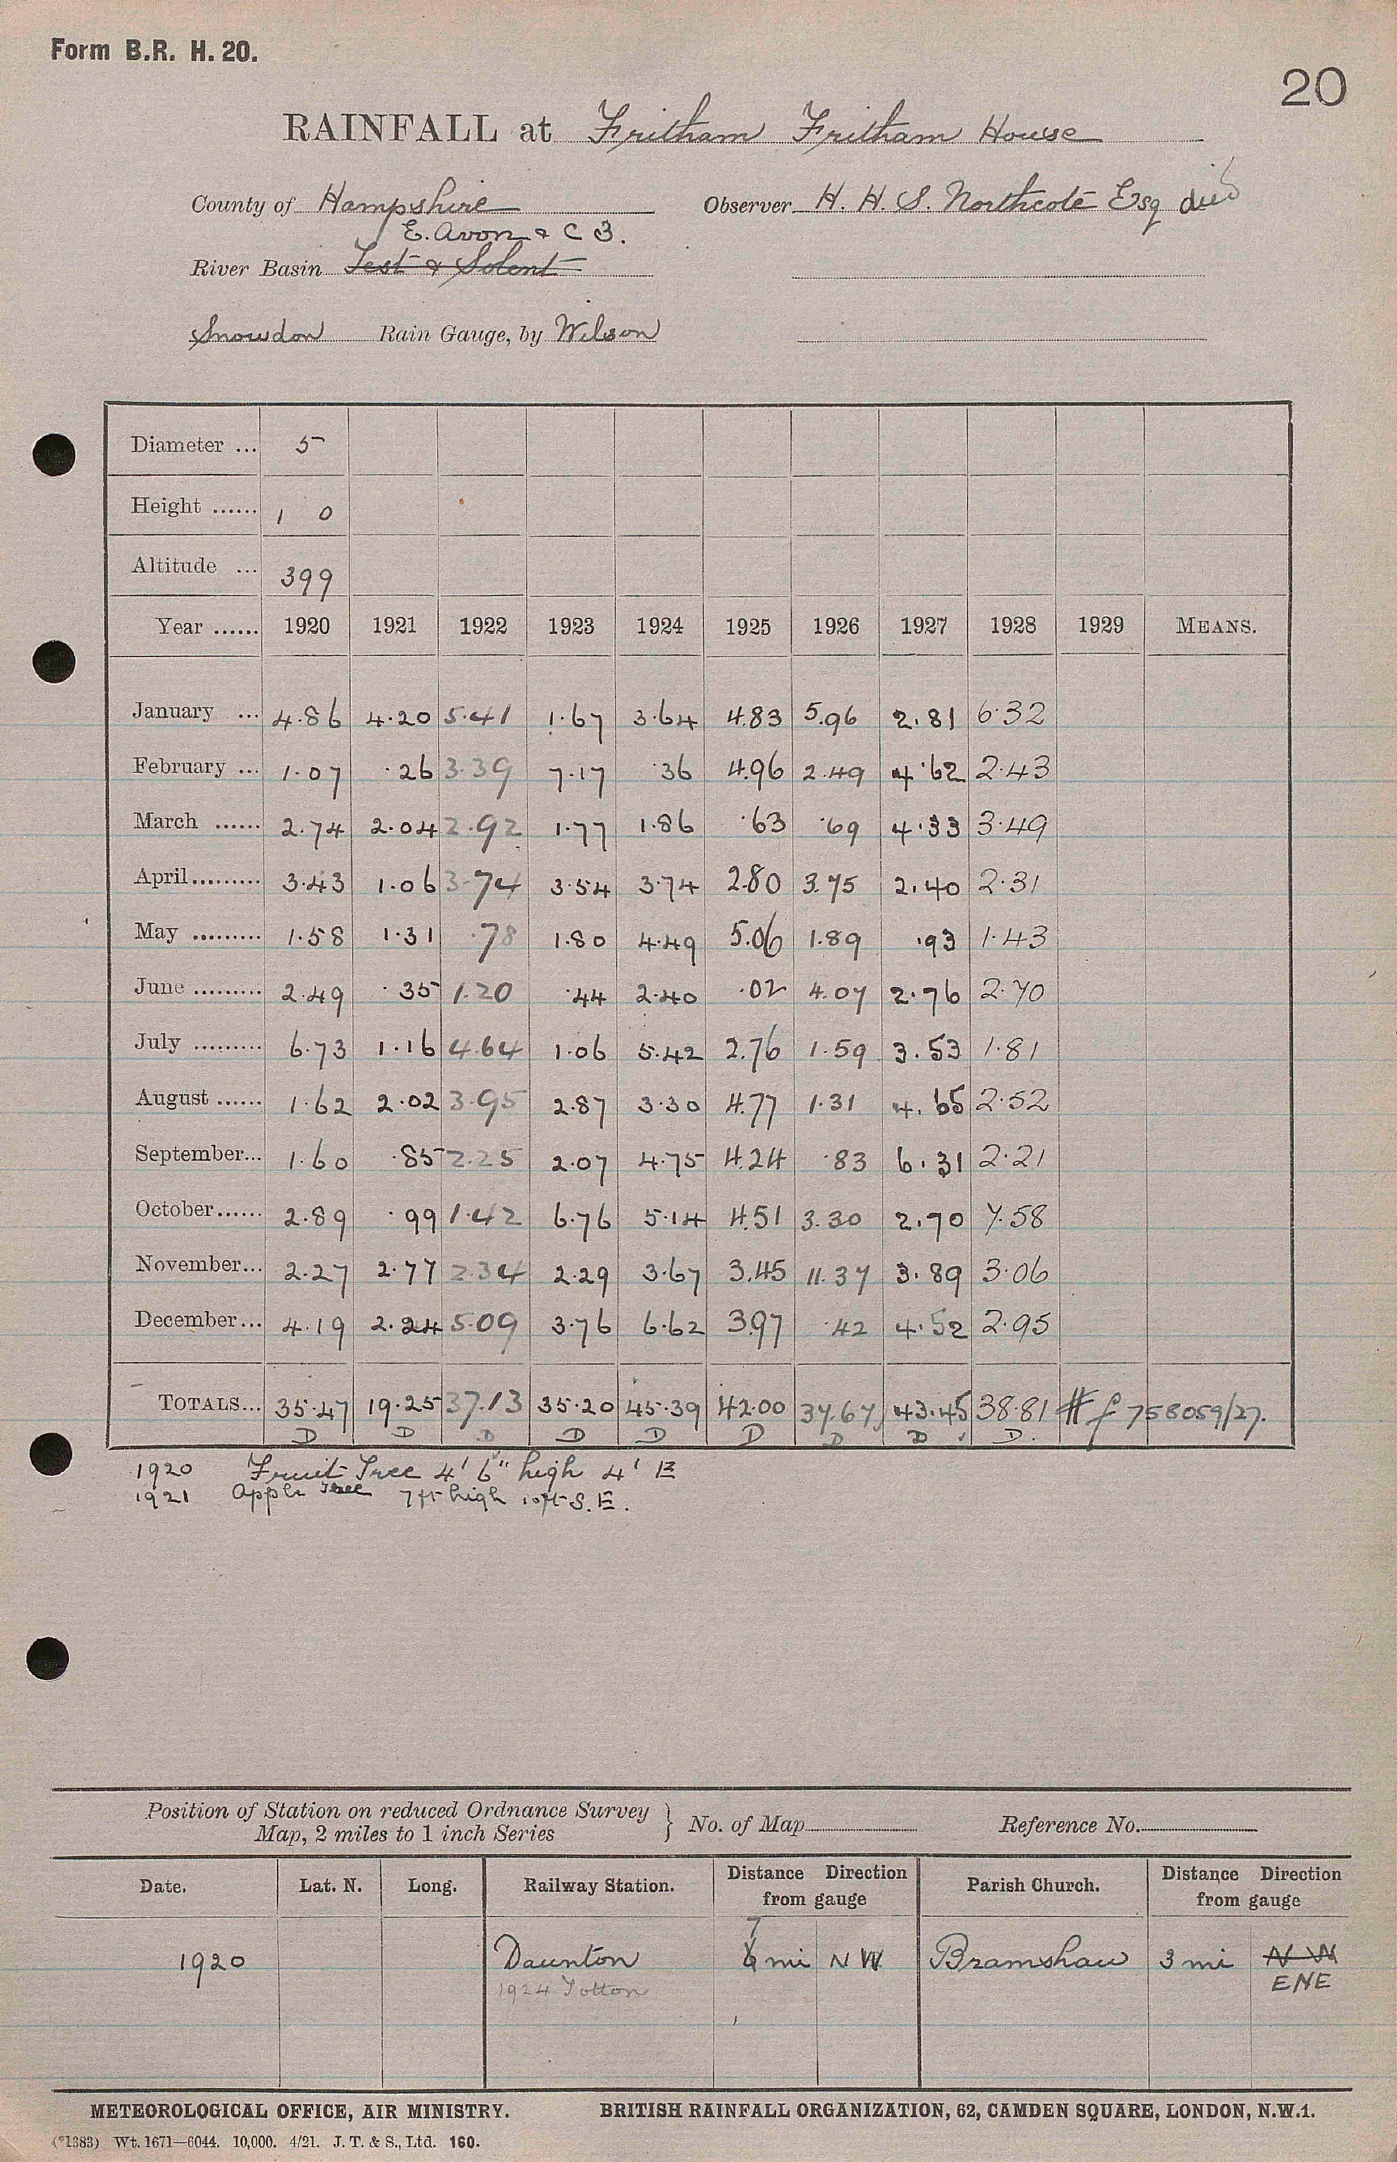 Form B.R. H. 20.
20
RAINFALL at Fritham Fritham House
County of Hampshire Observer H. H. S. Northcote Esq died
E. Avon & C 3.
River Basin Test & Solent
Snowdon Rain Gauge, by Wilson
Diameter ... 5
Height ...... 1 0
Altitude ... 399
Year ...... 1920 1921 1922 1923 1924 1925 1926 1927 1928 1929 MEANS.
January ... 4.86 4.20 5.41 1.67 3.64 4.83 5.96 2.81 6.32
February ... 1.07 .26 3.39 7.17 .36 4.96 2.49 4.62 2.43
March ...... 2.74 2.04 2.92 1.77 1.86 .63 .69 4.33 3.49
April ......... 3.43 1.06 3.74 3.54 3.74 2.80 3.75 2.40 2.31
May ......... 1.58 1.31 .78 1.80 4.49 5.06 1.89 .93 1.43
June ......... 2.49 .35 1.20 .44 2.40 .02 4.07 2.76 2.70
July ......... 6.73 1.16 4.64 1.06 5.42 2.76 1.59 3.53 1.81
August ...... 1.62 2.02 3.95 2.87 3.30 4.77 1.31 4.65 2.52
September... 1.60 .85 2.25 2.07 4.75 4.24 .83 6.31 2.21
October...... 2.89 .99 1.42 6.76 5.14 4.51 3.30 2.70 7.58
November... 2.27 2.77 2.34 2.29 3.67 3.45 11.37 3.89 3.06
December... 4.19 2.24 5.09 3.76 6.62 3.97 .42 4.52 2.95
TOTALS... 35.47 19.25 37.13 35.20 45.39 42.00 37.67 43.45 38.81 # f 758059/27.
D D D D D D D D D.
1920 Fruit Tree 4' 6" high 4' E
1921 Apple Tree 7ft high 10ft S.E.
Position of Station on reduced Ordnance Survey
Map, 2 miles to 1 inch Series } No. of Map Reference No.
Date. Lat. N. Long. Railway Station. Distance Direction from gauge Parish Church. Distance Direction from gauge
7
1920 Daunton 6 mi N W Bramshaw 3 mi N W
1924 Totton ENE
METEOROLOGICAL OFFICE, AIR MINISTRY. BRITISH RAINFALL ORGANIZATION, 62, CAMDEN SQUARE, LONDON, N.W.1.
(*1383) Wt. 1671—6044. 10,000. 4/21. J. T. & S., Ltd. 160.